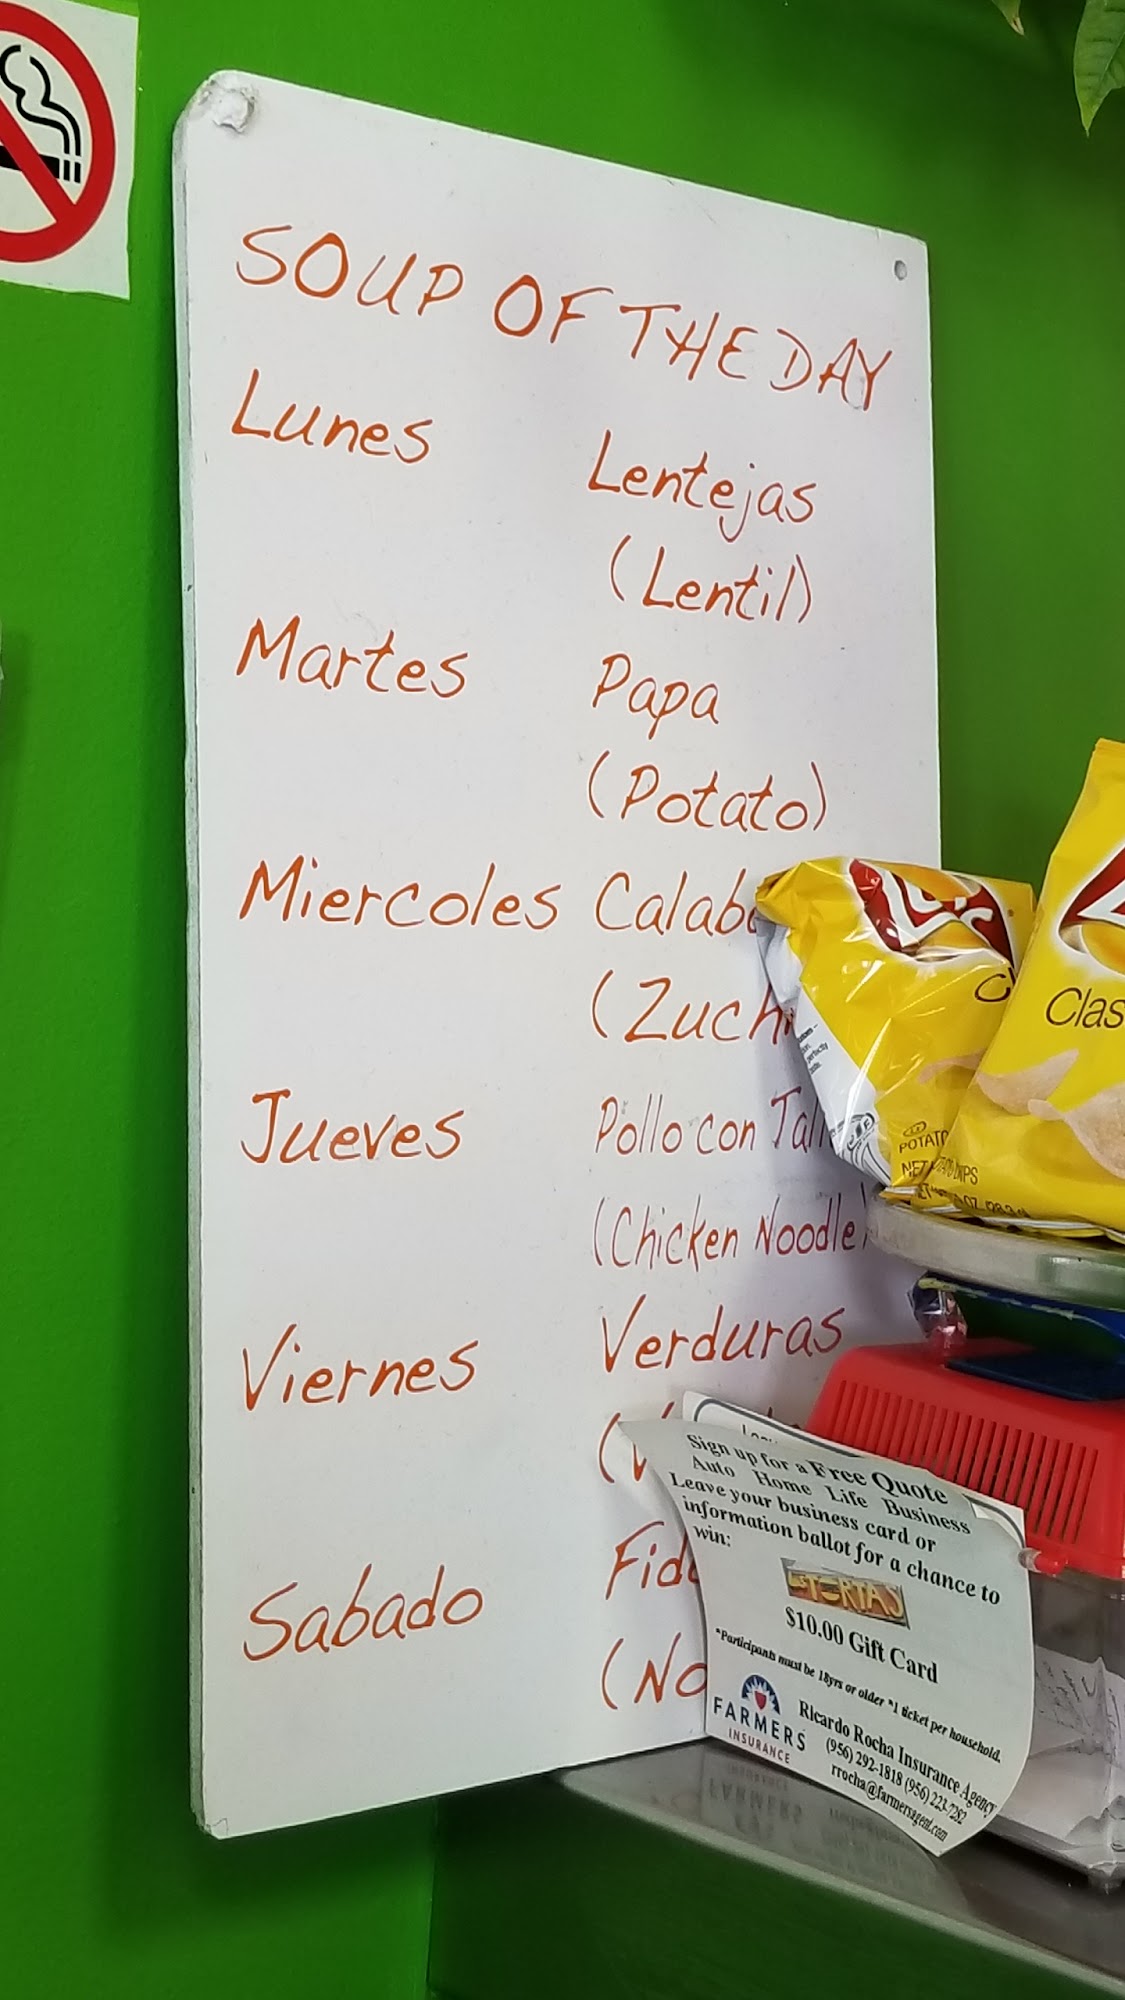 SOUP OF THE DAY
Lunes
Lentejas
(Lentil)
Martes
Papa
(Potato)
Miercoles
Jueves
Pollo con
(Chicken Noodle)
Viernes
Verduras
Sabado
Lay's
Classic
POTATO CHIPS
Sign up for a Free Quote
Auto Home Life Business
Leave your business card or
information ballot for a chance to
win:
TORTAS
$10.00 Gift Card
*Participants must be 18yrs or older *1 ticket per household.
FARMERS
INSURANCE
Ricardo Rocha Insurance Agency
(956) 292-1818 (956) 223-7282
rrocha@farmersagent.com